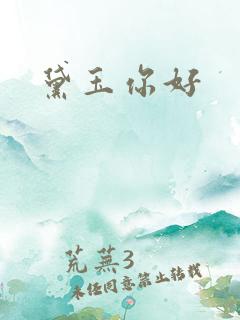 黛玉你好
荒芜3
未经同意禁止转载